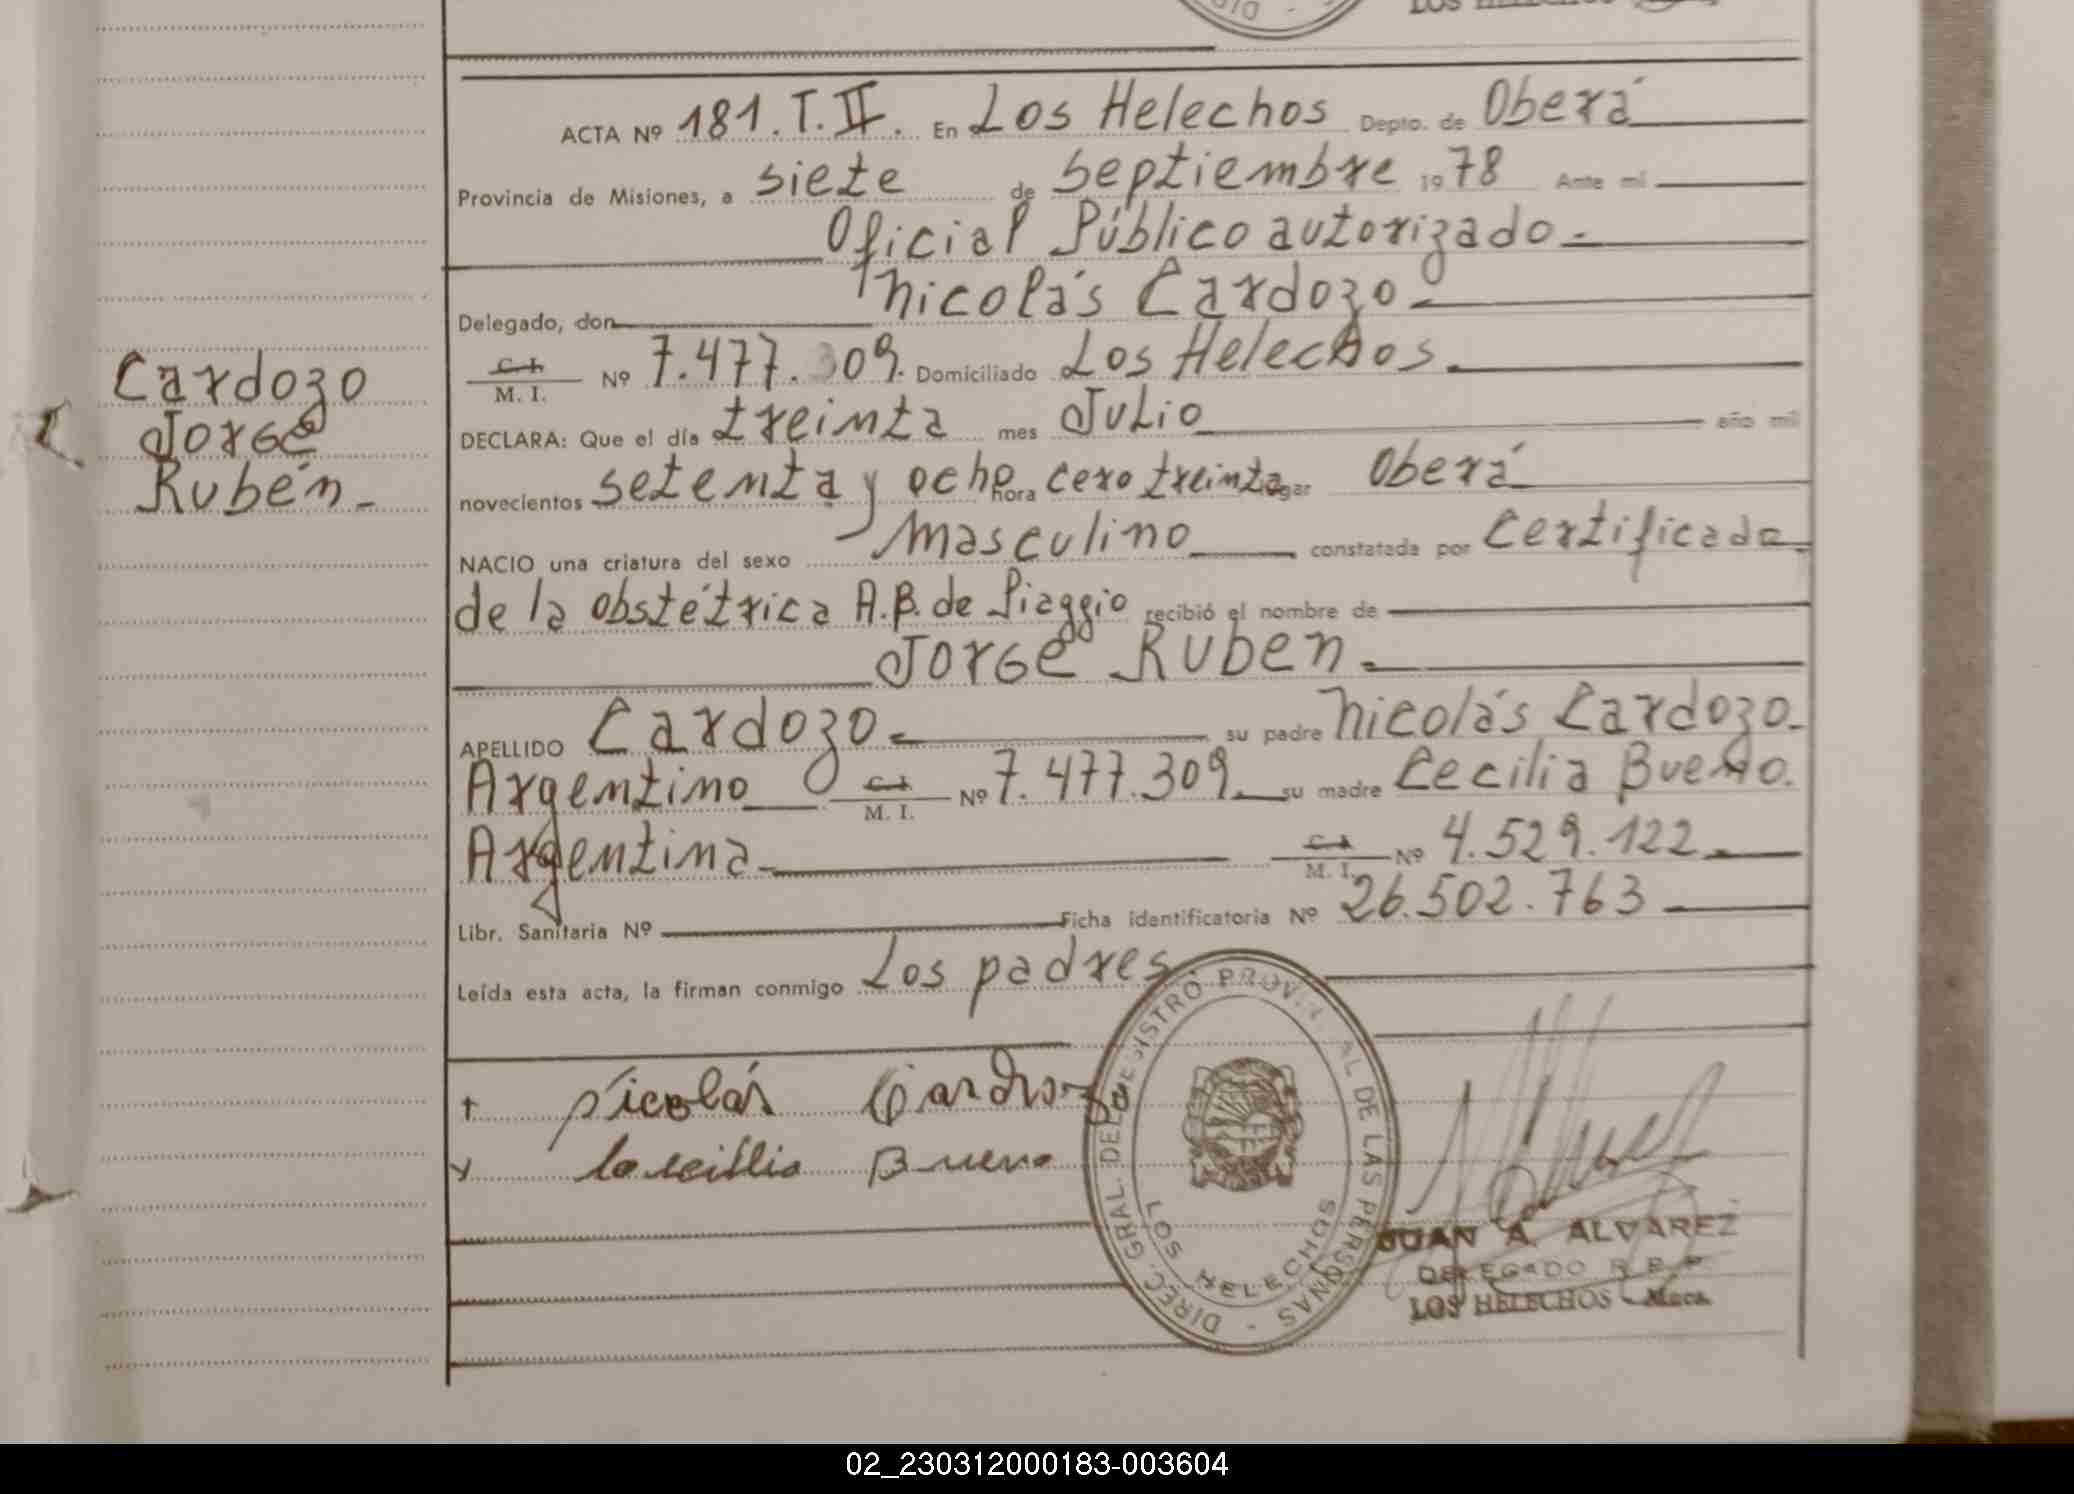 LOS HELECHOS
ACTA Nº 181. T. II. En Los Helechos Depto. de Oberá
Provincia de Misiones, a siete de septiembre 1978 Ante mí
Oficial Público autorizado -
Delegado, don Nicolás Cardozo -
C. I. M. I. Nº 7.477.309. Domiciliado Los Helechos.
DECLARA: Que el día treinta mes Julio año mil
novecientos setenta y ocho hora cero treinta lugar Oberá
NACIO una criatura del sexo Masculino constatada por Certificado
de la obstétrica A.B. de Piaggio recibió el nombre de
Jorge Ruben.
APELLIDO Cardozo. su padre Nicolás Cardozo.
Argentino C. I. M. I. Nº 7.477.309. su madre Cecilia Bueno.
Argentina. C. I. M. I. Nº 4.529.122.
Libr. Sanitaria Nº Ficha identificatoria Nº 26.502.763
Leída esta acta, la firman conmigo Los padres
Cardozo
Jorge
Rubén -
Nicolás Cardozo
Bueno
DIREC. GRAL. DEL REGISTRO PROVINCIAL DE LAS PERSONAS -
LOS HELECHOS
JUAN A. ALVAREZ
DELEGADO R. P. P.
LOS HELECHOS - Mnes.
02_230312000183-003604